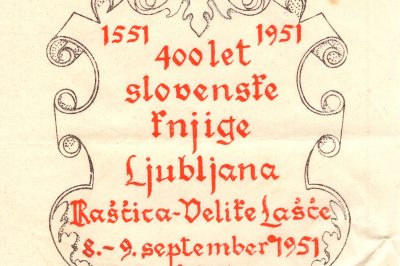 1551 1951
400 let
slovenske
knjige
Ljubljana
Raščica-Velike Lašče
8.-9. september 1951